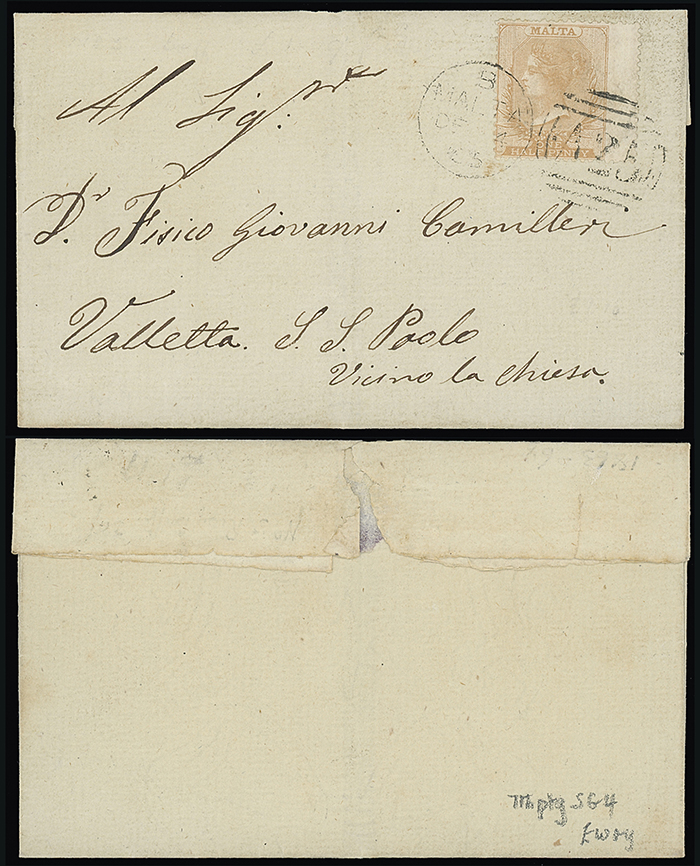 MALTA
HALF PENNY
B
MALTA
DE
A25
Al Sig.re
Dr. Fisico Giovanni Camilleri
Valletta. S. S. Paolo
Vicino la chiesa.
SG4